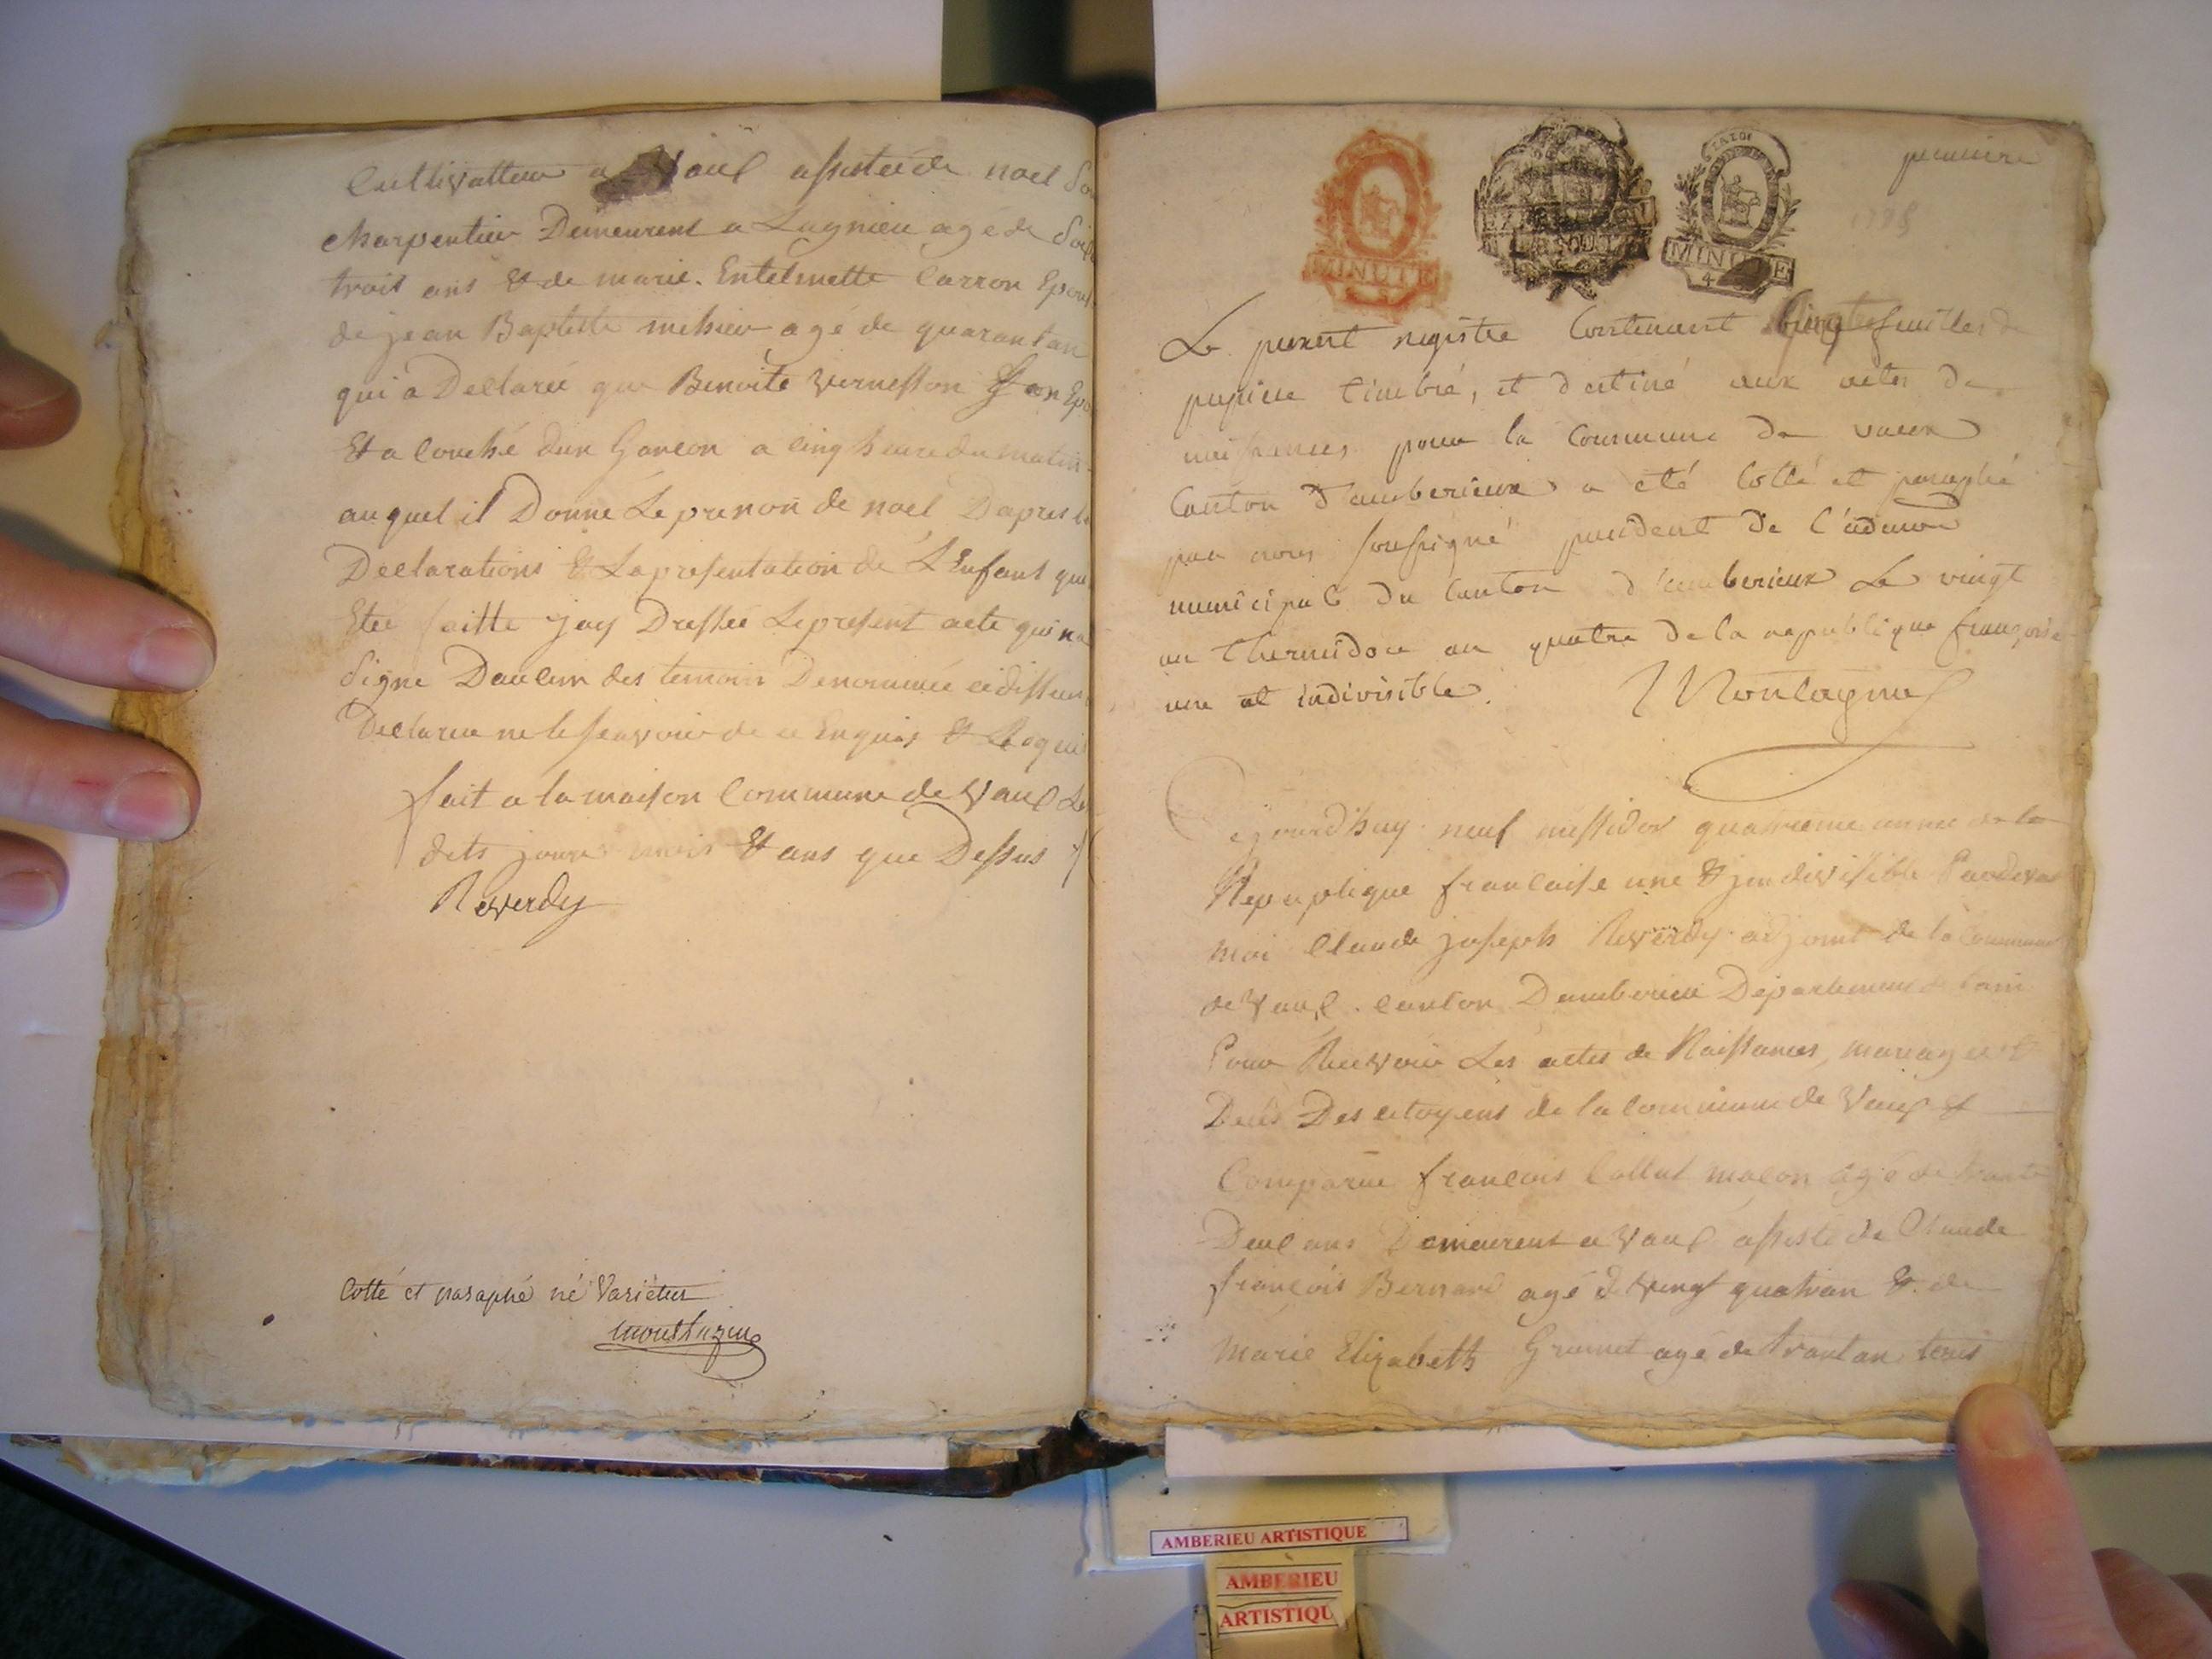 Cultivatteur a Vaux assistée de noel
charpentier Demeurent a Lagnieu agé de
trait ans & de marie. Entelmette Carron Epous
de jean Baptiste agé de quarantan
qui a Declarée que Benoite vernesson son Epo
Et a Couché dun Garcon a cinq heure du matin
auquel il Donne Le prenon de noel Dapres
Declarations & La presentation de L'Enfant que
Etée faitte jay Dressée Le present acte qui na
Signe Daucun des temoin Denommée cidissus
Declarée ne le seavoir de ce Enquis & Requi
fait a la maison Commune de Vaux Le
dits jour mois & ans que Dessus
Reverdy
Cotté et paraphé né Varietur
première
MINUTE
MINUTE
4
Le present registre Contenant feuilles de
papier timbré, et destiné aux actes de
naissances pour la Commune de vaux
Canton d'amberieux a été Cotté et paraphé
par nous soussigné president de l'admon
municipale du Canton d'amberieux Le vingt
un thermidor an quatre de la republique française
une et indivisible. Montagne
Cejourdhuy neuf messidor quatrieme année de la
Repuplique francaise une & jendivisible Pardevan
moi Claude joseph Reverdy adjoint de la Commune
de Vaux. canton Damberieu Departement de Lain
Pour Recevoir Les actes de Naissances, mariages &
Decés Des citoyens de la Commune de Vaux &
Comparue francois Collut macon agé de trante
Deux ans Demeurent a Vaux assisté de Claude
francois Bernard agé de vingt quatran & de
Marie Elizabeth agé de trantan
AMBERIEU ARTISTIQUE
AMBERIEU
ARTISTIQU